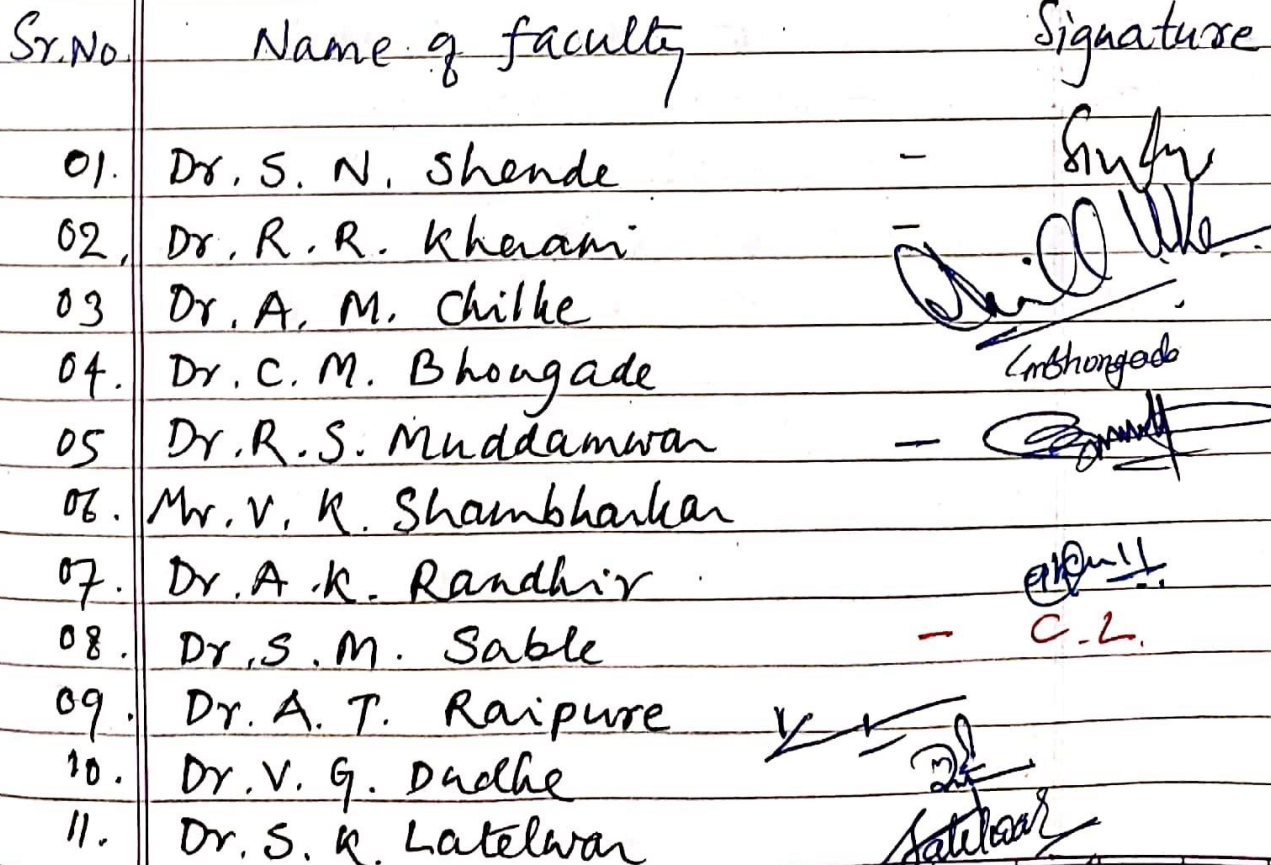 Sr.No. Name of faculty Signature
01. Dr. S. N. Shende -
02. Dr. R. R. Kheami -
03 Dr. A. M. Chilke
04. Dr. C. M. Bhongade CmBhongade
05 Dr. R. S. Muddamwar -
06. Mr. V. K. Shambharkar
07. Dr. A. K. Randhir
08. Dr. S. M. Sable - C.L.
09. Dr. A. T. Raipure
10. Dr. V. G. Dudhe
11. Dr. S. K. Latelwar